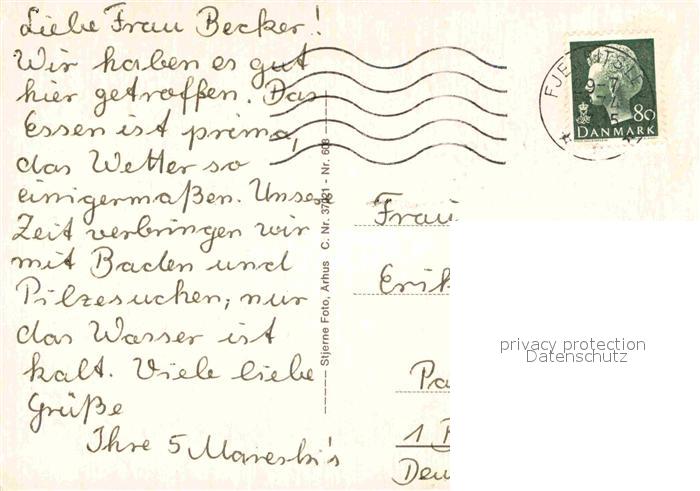 Liebe Frau Becker!
Wir haben es gut
hier getroffen. Das
Essen ist prima,
das Wetter so
einigermaßen. Unsere
Zeit verbringen wir
mit Baden und
Pilzesuchen, nur
das Wasser ist
kalt. Viele liebe
Grüße
Ihre 5
Stjerne Foto, Arhus C. Nr. - Nr.
80
DANMARK
Frau
privacy protection
Datenschutz
1